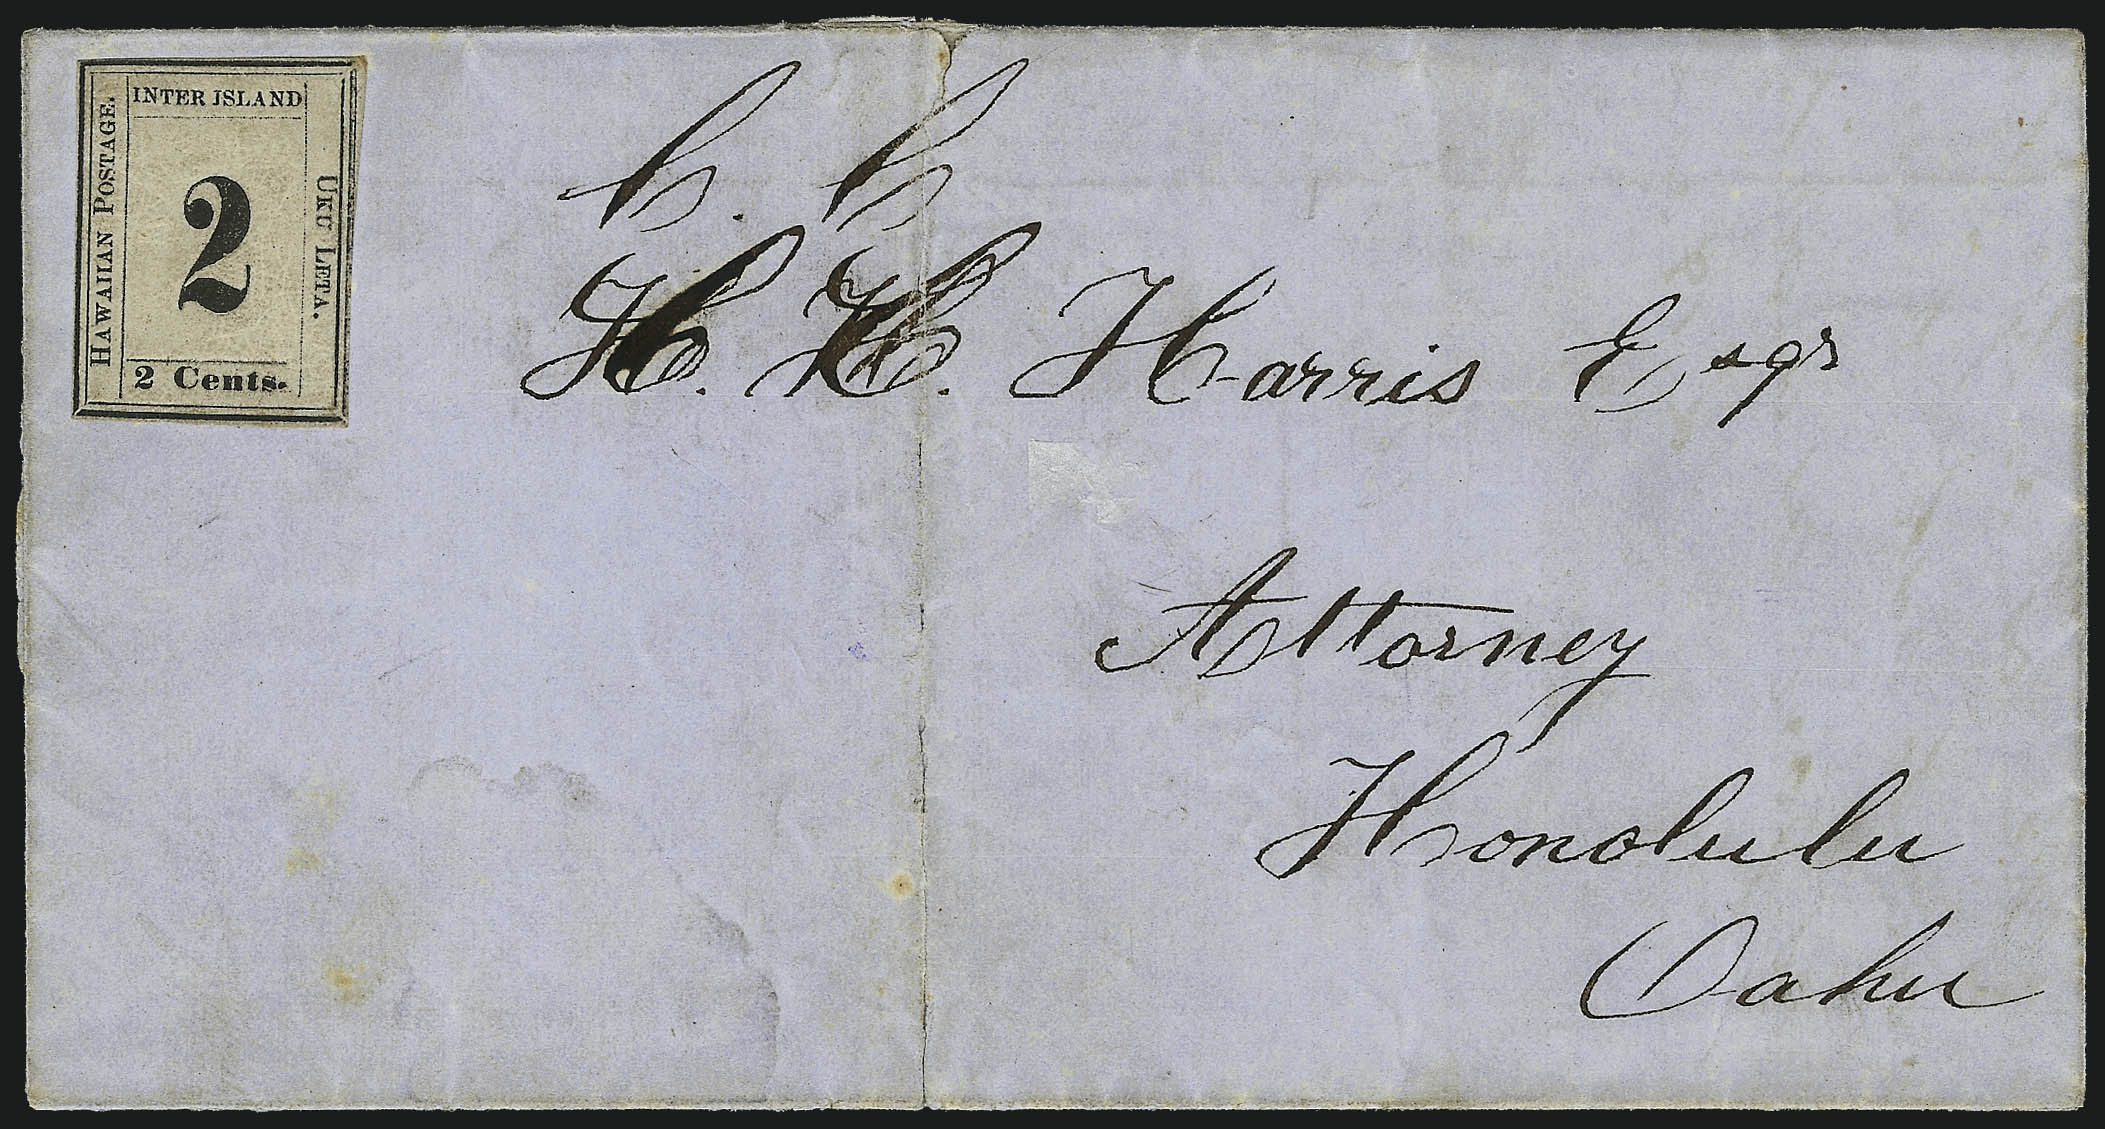 INTER ISLAND
HAWAIIAN POSTAGE.
2
UKU LETA.
2 Cents.
C. C
H. H. Harris Esqr
Attorney
Honolulu
Oahu